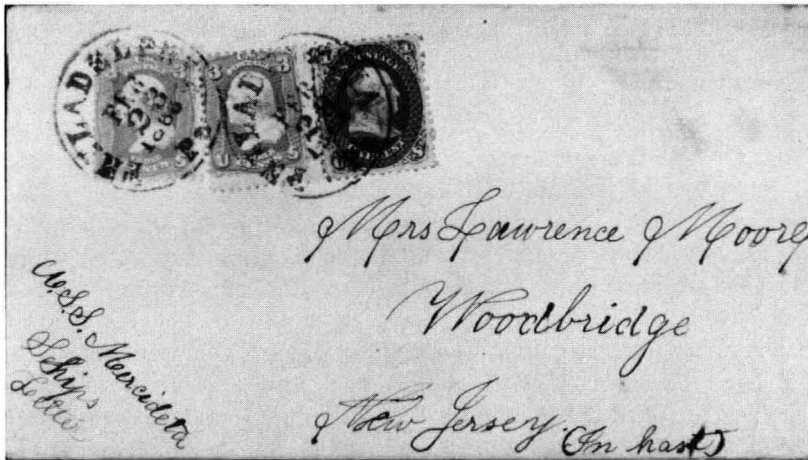 PHILADELPHIA PA
3 3
U 3 CENTS S
Mrs Lawrence Moore
Woodbridge
New Jersey.
(In haste)
U.S.S. Mercideta
Ships
Letter